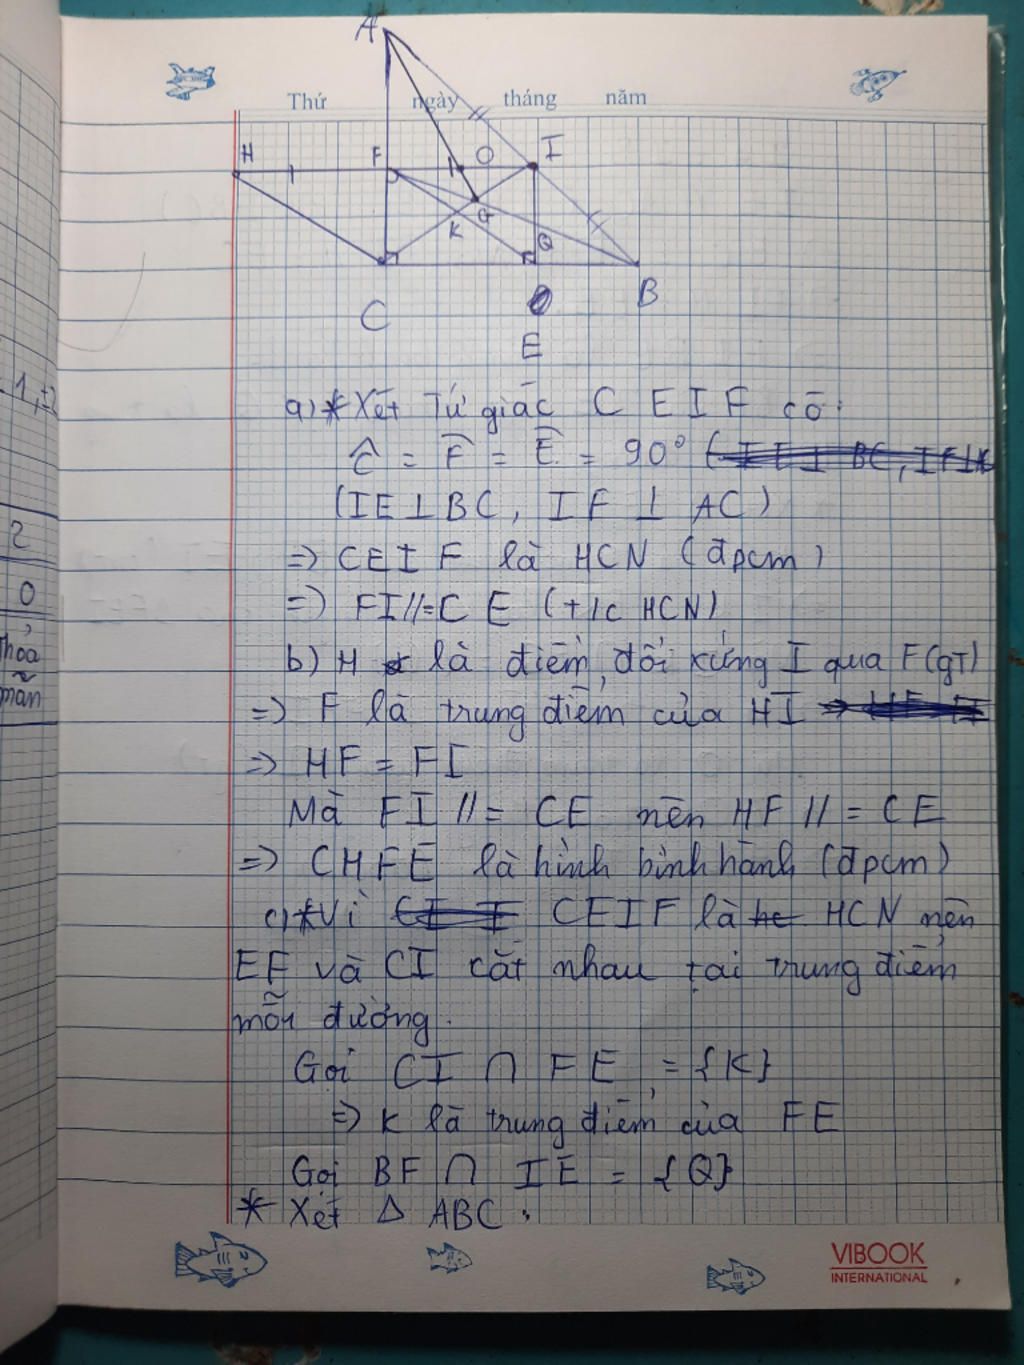 A
Thứ ngày tháng năm
H F O I
K G Q
C B
E
1, ±2
a) * Xét Tứ giác C E I F có:
Ĉ = F̂ = Ê = 90°
(IE ⊥ BC, IF ⊥ AC)
2
=> CEIF là HCN (đpcm)
0
=> FI //= CE (t/c HCN)
Thỏa
mãn
b) H là điểm đối xứng I qua F (gT)
=> F là trung điểm của HI
=> HF = FI
Mà FI //= CE nên HF //= CE
=> CHFE là hình bình hành (đpcm)
c) * Vì CEIF là HCN nên
EF và CI cắt nhau tại trung điểm
mỗi đường.
Gọi CI ∩ FE = {K}
=> K là trung điểm của FE
Gọi BF ∩ IE = {Q}
* Xét Δ ABC:
VIBOOK
INTERNATIONAL